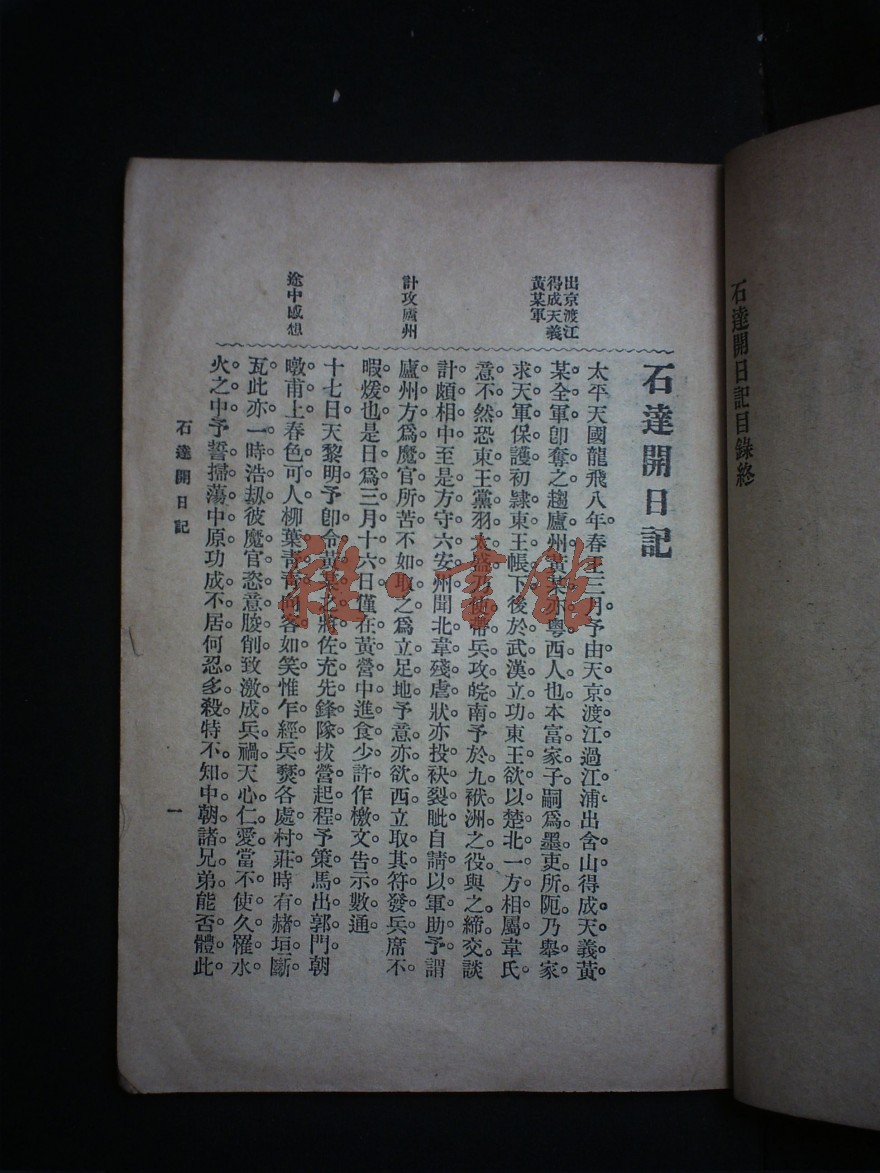 石達開日記目錄終
石達開日記
出京渡江
得成天義
黃某軍
計攻廬州
途中感想
太平天國龍飛八年。春王三月。予由天京渡江。過江浦。出含山。得成天義黃
某全軍。卽奪之。趨廬州。黃某亦粵西人也。本富家子。嗣爲墨吏所阨。乃舉家
求天軍保護。初隸東王帳下。後於武漢立功。東王欲以楚北一方相屬。韋氏
意不然。恐東王黨羽太盛。乃使帶兵攻皖南。予於九袱洲之役。與之締交。談
計頗相中。至是方守六安州。聞北韋殘虐狀。亦投袂裂眦。自請以軍助予。謂
廬州方爲魔官所苦。不如取之爲立足地。予意亦欲西。立取其符發兵。席不
暇煖也。是日爲三月十六日。僅在黃營中進食少許。作檄文告示數通。
十七日。天黎明。予卽令黃某之將佐充先鋒隊。拔營起程。予策馬出郭門。朝
暾甫上。春色可人。柳葉青青。向客如笑。惟乍經兵燹。各處村莊。時有赭垣斷
瓦。此亦一時浩刼。彼魔官恣意朘削。致激成兵禍。天心仁愛。當不使久罹水
火之中。予誓掃蕩中原。功成不居。何忍多殺。特不知中朝諸兄弟。能否體此
石達開日記
一
雜·書館